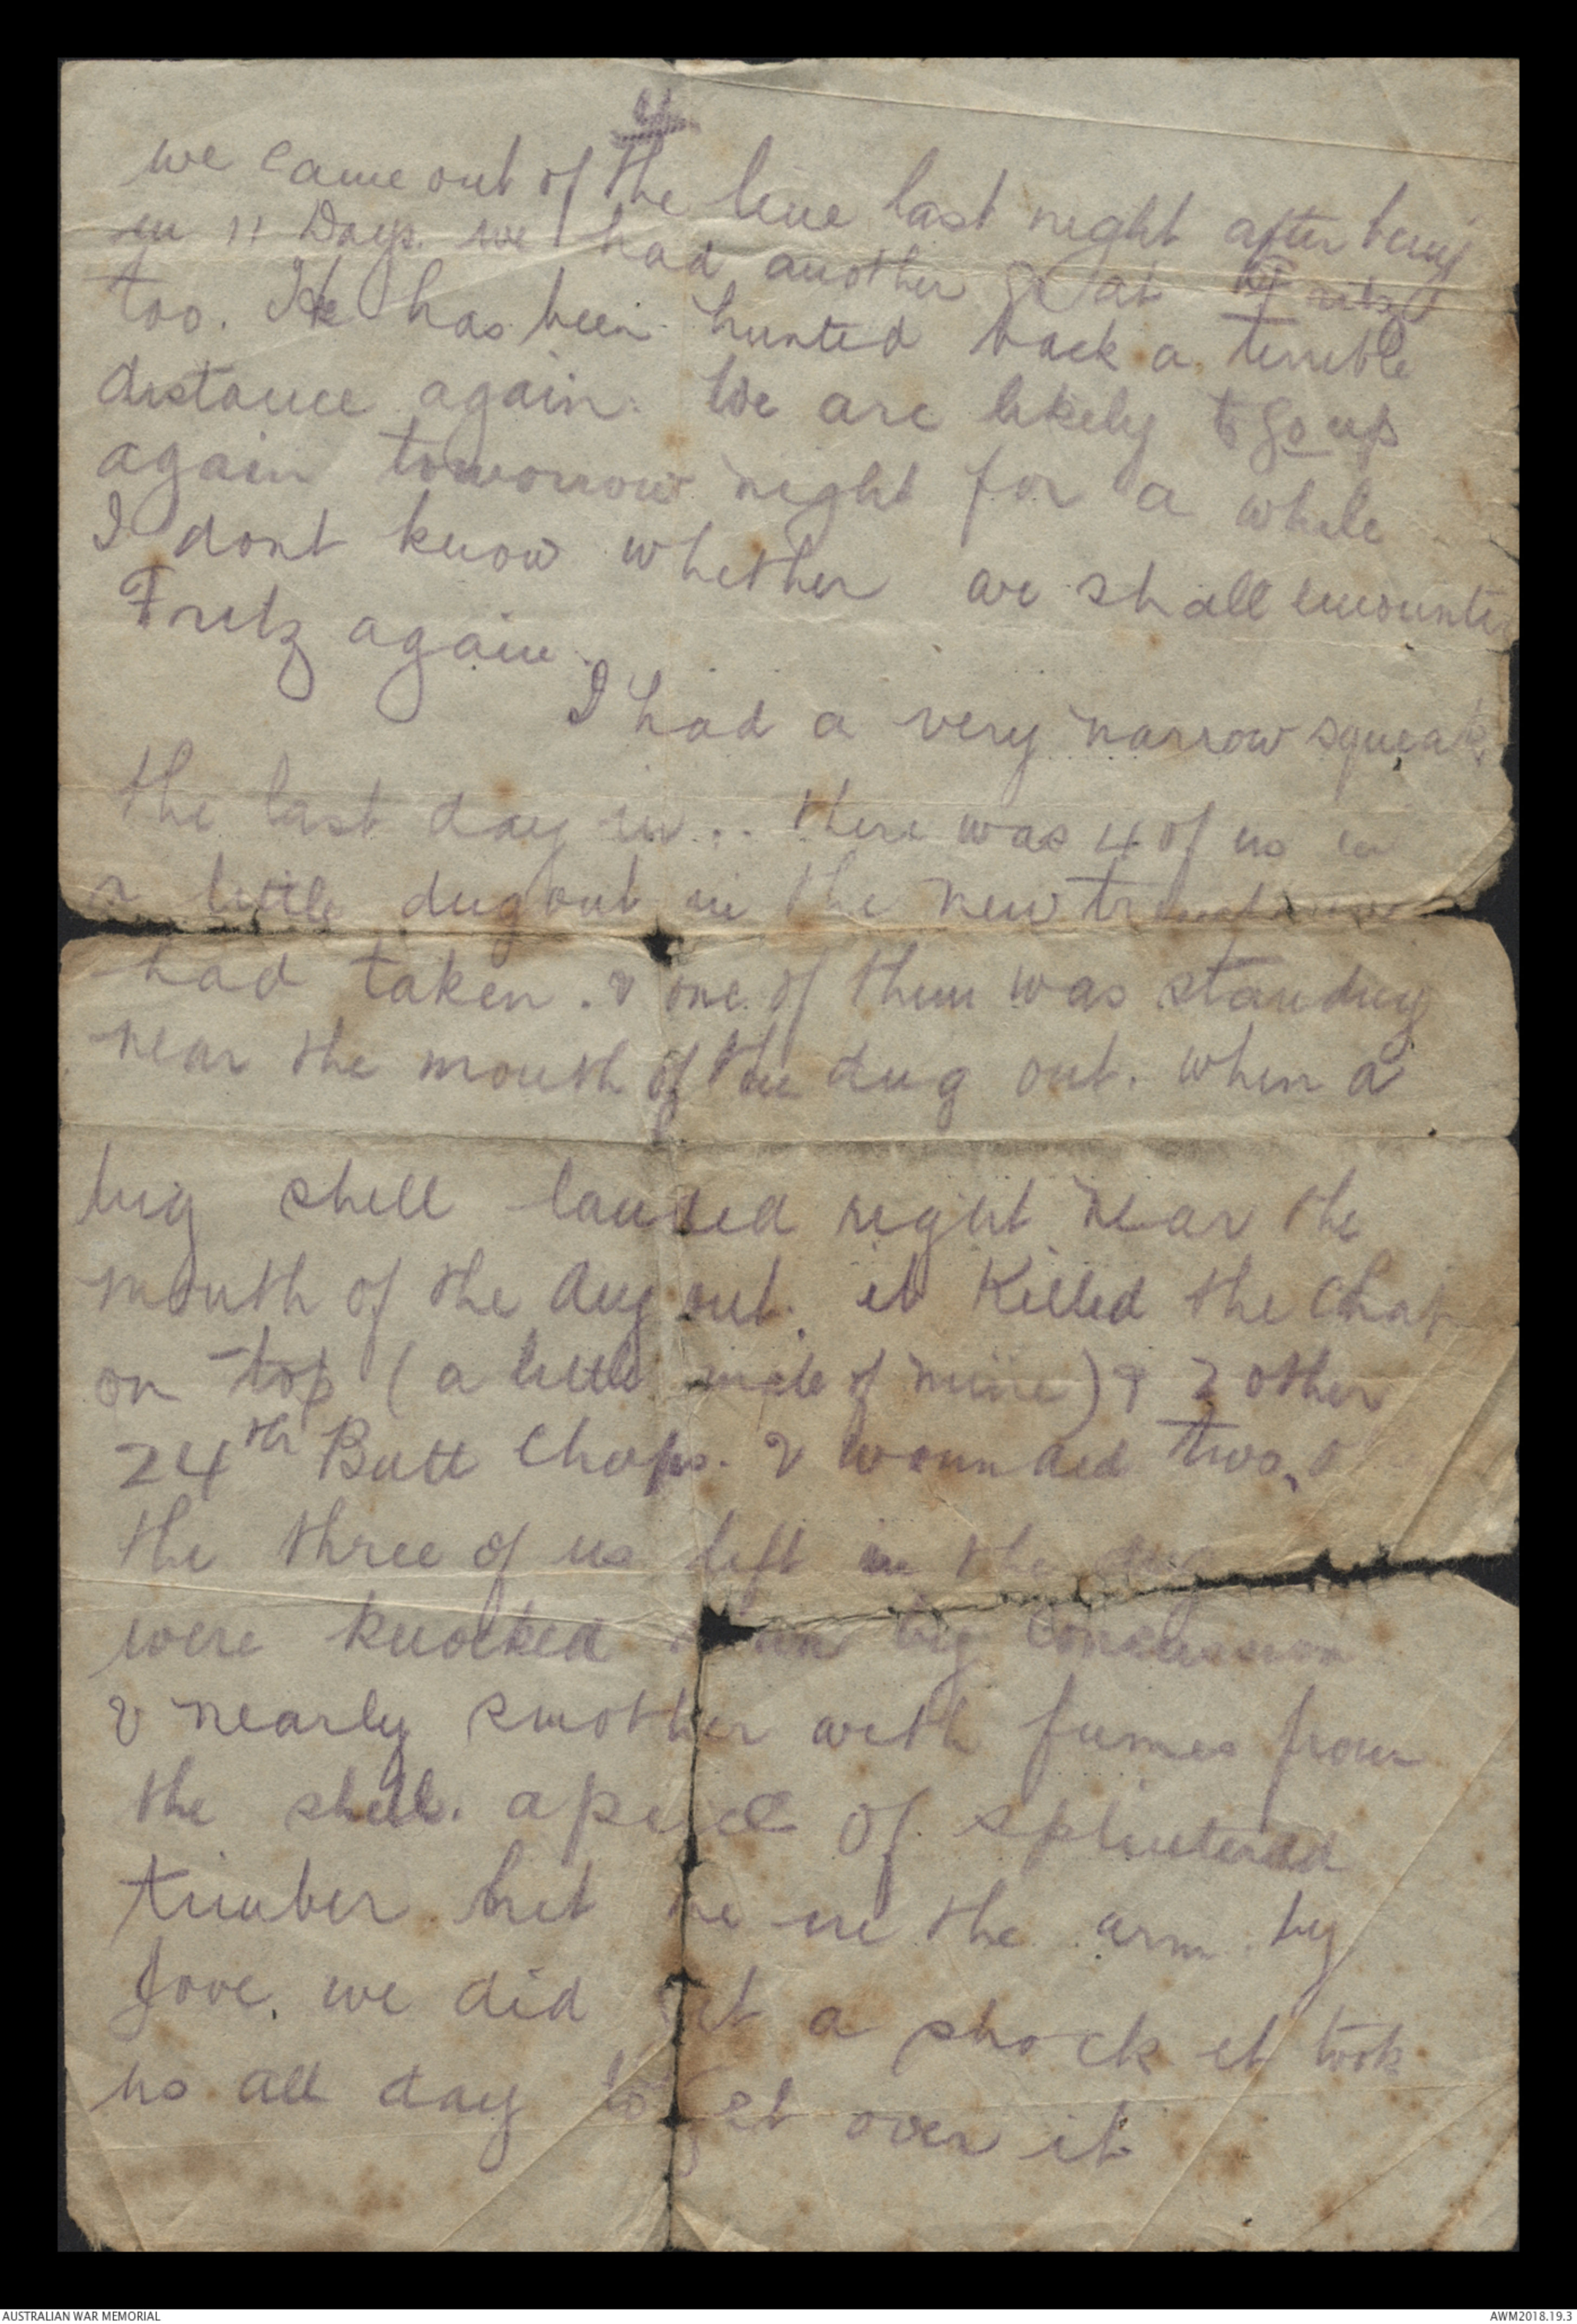 4
we came out of the line last night after being
in 11 Days. we had another go at Fritz
too. He has been hunted back a terrible
distance again. We are likely to go up
again tomorrow night for a while
I dont know whether we shall encounter
Fritz again.
I had a very narrow squeak
the last day in.. there was 4 of us in
a little dugout in the new
had taken. & one of them was standing
near the mouth of the dug out. when a
big shell landed right near the
mouth of the dug out. it Killed the Chap
on top (a little mate of mine) & 2 other
24th Batt Chaps. & wounded two,
the three of us left in the dug
were knocked by concussion
& nearly smother with fumes from
the shell. a piece of splintered
timber hit me in the arm. by
Jove. we did get a shock it took
us all day to get over it
AUSTRALIAN WAR MEMORIAL
AWM2018.19.3